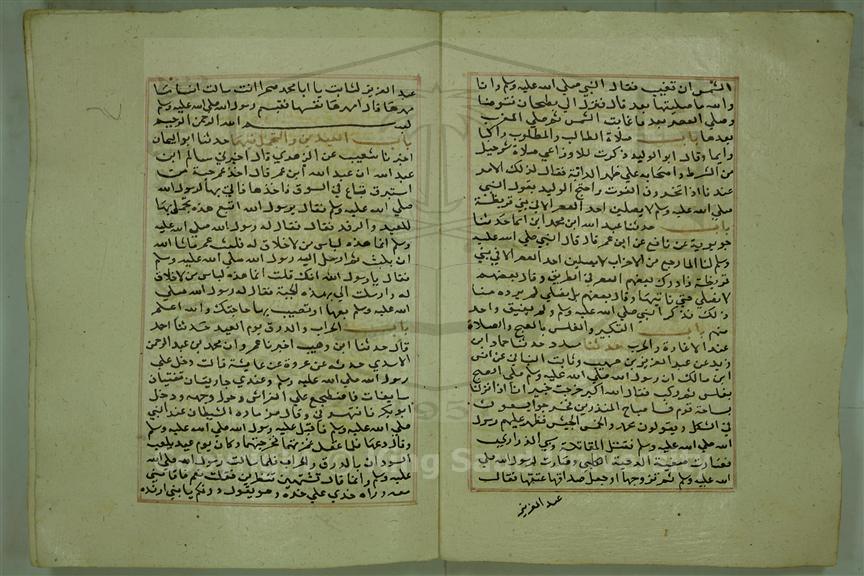 الشمس ان تغيب فقال النبي صلي الله عليه وسلم وانا
والله ما صليتها بعد قال فنزل الي بطحان فتوضا
وصلي العصر بعد ما غابت الشمس ثم صلي المغرب
بعدها باب صلاة الطالب والمطلوب راكبا
وايما وقال ابو الوليد ذكرت للاوزاعي صلاة شرحبيل
من الشرط واصحابه علي ظهر الدابة فقال لذلك الامر
عندنا اذا تخوف الفوت واحتج الوليد بقول النبي
صلي الله عليه وسلم لا يصلين احد العصر الا في بني قريظة
باب حدثنا عبد الله ابن محمد ابن اسما حدثنا
جويرية عن نافع عن ابن عمر قال قال النبي صلي الله عليه
وسلم لنا لما رجع من الاحزاب لا يصلين احد العصر الا في بني
قريظة فادرك بعضهم العصر في الطريق وقال بعضهم
لا نصلي حتي ناتيها وقال بعضهم بل نصلي لم يرد منا
ذلك فذكر النبي صلي الله عليه وسلم ولم يعنف واحد
منهم باب التكبير والغلس بالصبح والصلاة
عند الاغارة والحرب حدثنا مسدد حدثنا حماد ابن
زيد عن عبد العزيز بن صهيب وثابت البناني عن انس
ابن مالك ان رسول الله صلي الله عليه وسلم صلي الصبح
بغلس ثم ركب فقال الله اكبر خربت خيبر انا اذا نزلنا
بساحة قوم فسا صباح المنذرين فخرجوا يسعون
في السكك ويقولون محمد والخميس الجيش فظهر عليهم رسول
الله صلي الله عليه وسلم فقتل المقاتلة وسبي الذراري
فصارت صفية لدحية الكلبي وصارت لرسول الله صلي
الله عليه وسلم ثم تزوجها وجعل صداقها عتقها فقال
عبد العزيز
عبد العزيز لثابت يا ابا محمد انت سالت انسا ما
مهرها قال امهرها نفسها فتبسم رسول الله صلي الله عليه وسلم
بسم الله الرحمن الرحيم
باب العيدين والتجمل فيهما حدثنا ابو اليمان
اخبرنا شعيب عن الزهري قال اخبرني سالم ابن
عبد الله ان عبد الله ابن عمر قال اخذ عمر جبة من
استبرق تباع في السوق فاخذها فاتي بها رسول الله
صلي الله عليه وسلم فقال يرسول الله ابتع هذه تجمل بها
للعيد والوفد فقال له رسول الله صلي الله عليه
وسلم انما هذه لباس من لا خلاق له فلبث عمر ما شا الله
ان يلبث ثم ارسل اليه رسول الله صلي الله عليه وسلم
فقال يا رسول الله انك قلت انما هذه لباس من لا خلاق
له وارسلت الي بهذه الجبة فقال له رسول الله صلي
الله عليه وسلم تبيعها او تصيب بها حاجتك والله اعلم
باب الحراب والدرق يوم العيد حدثنا احمد
قال حدثنا ابن وهب اخبرنا عمرو ان محمد بن عبد الرحمن
الاسدي حدثه عن عروة عن عايشة قالت دخل علي
رسول الله صلي الله عليه وسلم وعندي جاريتان تغنيان
فاضطجع علي الفراش وحول وجهه ودخل
ابو بكر فانتهرني وقال مزمارة الشيطان عند النبي
صلي الله عليه وسلم فاقبل عليه رسول الله صلي الله عليه وسلم
وقال دعهما فلما غفل غمزتهما فخرجتا وكان يوم عيد يلعب
السودان بالدرق والحراب فلما سالت رسول الله صلي الله
عليه وسلم واما قال تشتهين تنظرين فقلت نعم فاقامني
وراه خدي علي خده وهو يقول دونكم يا بني ارفدة